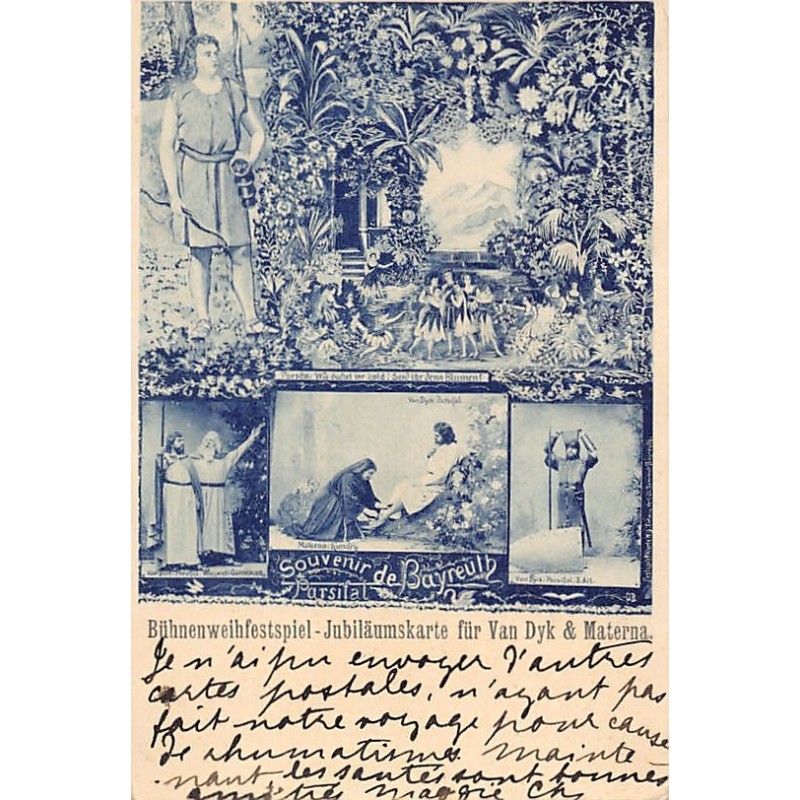 Parsifal: Wie duftet ihr hold! Seid ihr denn Blumen?
Van Dyck: Parsifal.
Materna: Kundry
Van Dyck: Parsifal. 3. Akt.
Souvenir de Bayreuth
Parsifal
Bühnenweihfestspiel - Jubiläumskarte für Van Dyk & Materna.
Je n'ai pu envoyer d'autres
cartes postales, n'ayant pas
fait notre voyage pour cause
de rhumatisme. Mainte-
nant les santés sont bonnes